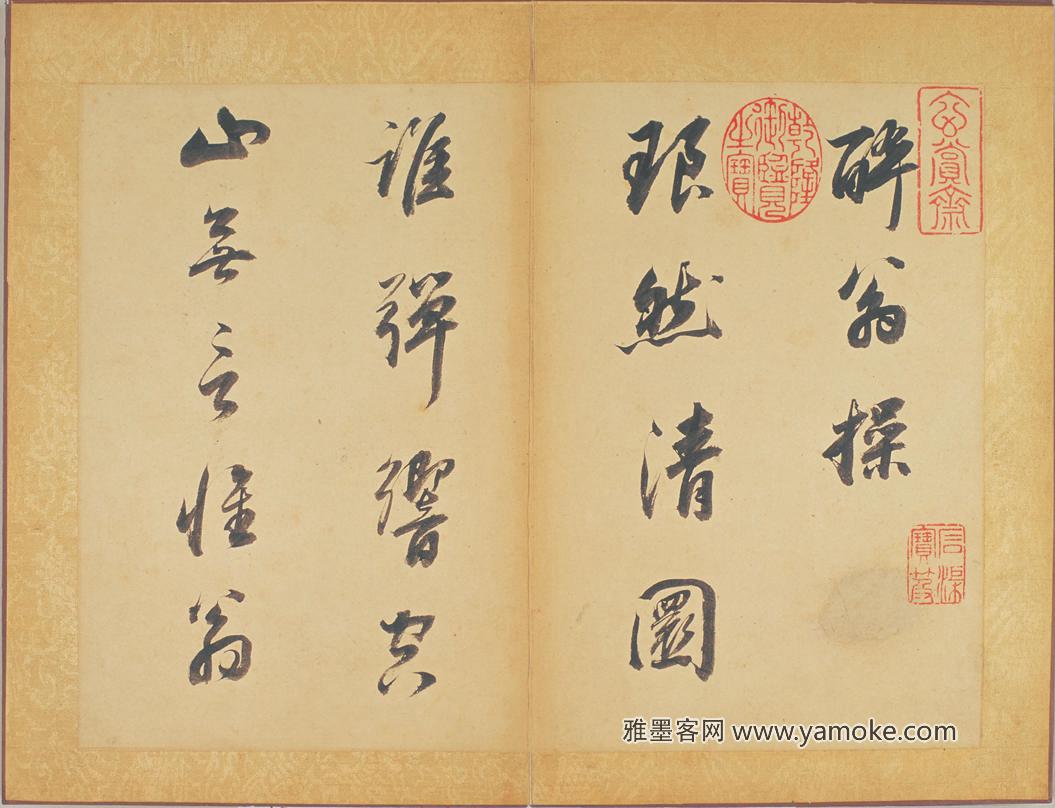 玄賞齋
醉翁操
乾隆御覽之寶
琅然清圜
誰彈響空
山無言惟翁
雅墨客网 www.yamoke.com